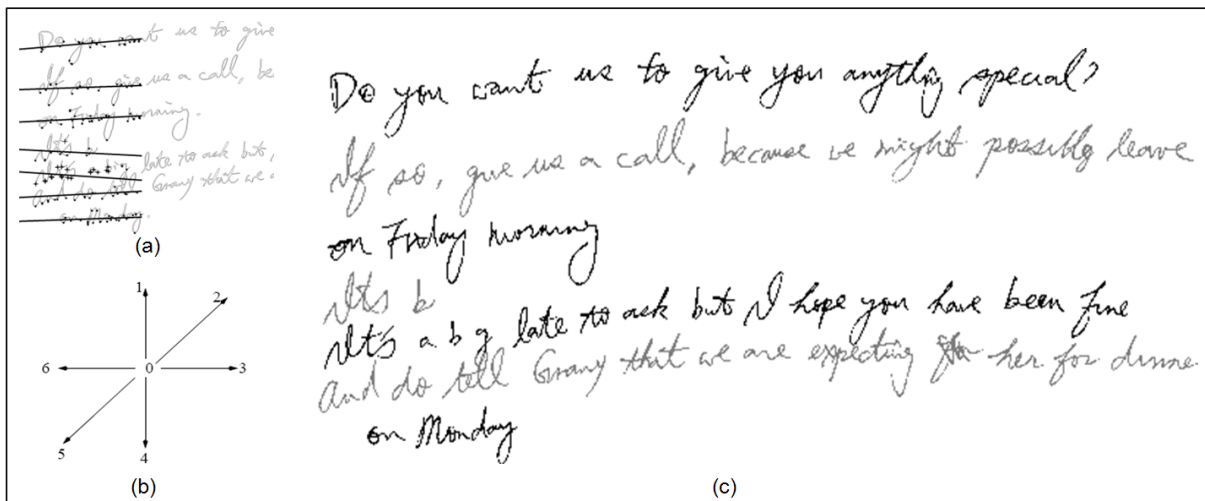 Do you want us to give
If so, give us a call, be
on Friday morning.
It's b
It's a big late to ask but,
and do tell Grany that we a
on Monday.
(a)
1
2
6 0 3
5
4
(b)
Do you want us to give you anything special?
If so, give us a call, because we might possibly leave
on Friday morning
It's b
It's a b g late to ask but I hope you have been fine
and do tell Grany that we are expecting for her for dinne
on Monday
(c)